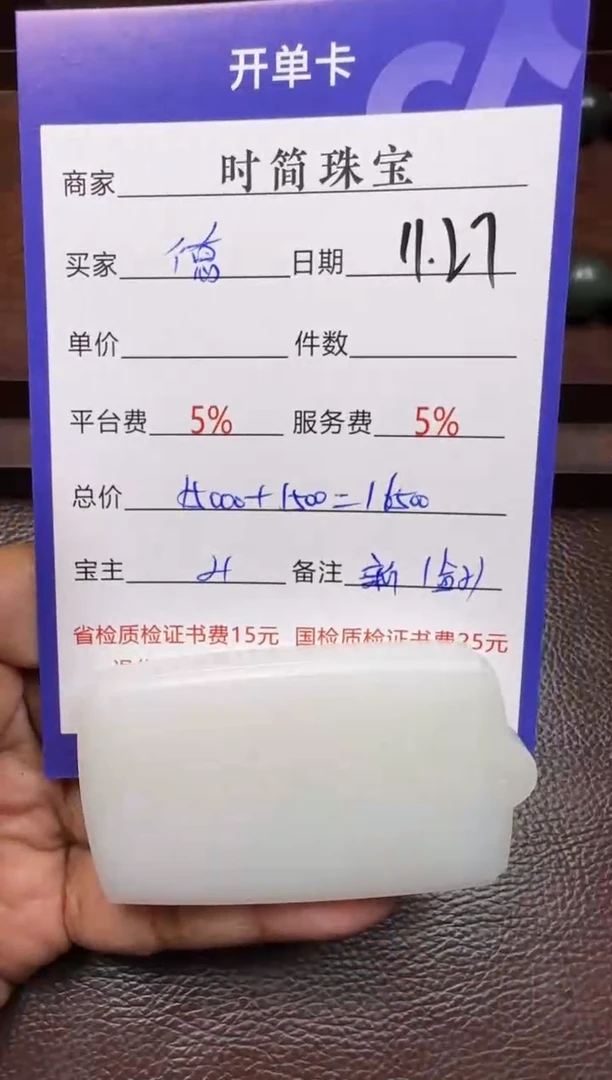 开单卡
商家 时简珠宝
买家 德 日期 11.27
单价 件数
平台费 5% 服务费 5%
总价 15000+1500=16500
宝主 备注 新
省检质检证书费15元 国检质检证书费25元